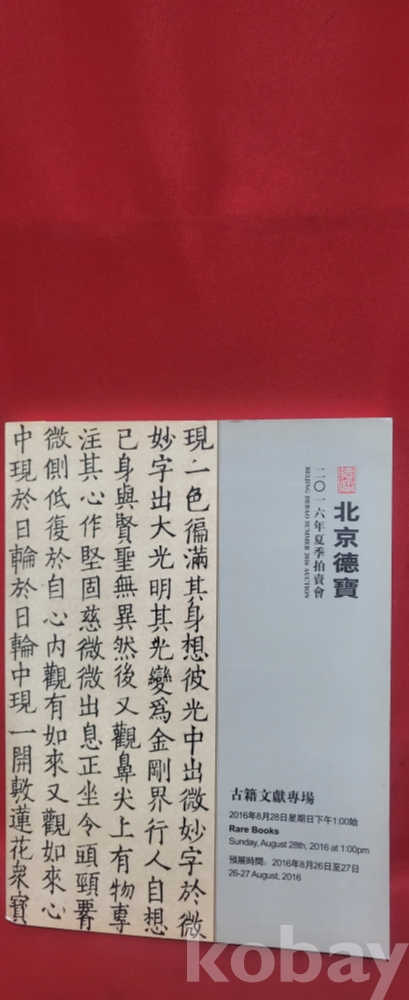 現一色徧滿其身想彼光中出微妙字於微
妙字出大光明其光變爲金剛界行人自想
己身與賢聖無異然後又觀鼻尖上有物專
注其心作堅固慈微微出息正坐令頭頸脊
微側低復於自心内觀有如來又觀如來心
中現於日輪於日輪中現一開敷蓮花衆寳
北京德寶
二〇一六年夏季拍賣會
BEIJING DEBAO SUMMER 2016 AUCTION
古籍文獻專場
2016年8月28日星期日下午1:00始
Rare Books
Sunday, August 28th, 2016 at 1:00pm
預展時間：2016年8月26日至27日
26-27 August, 2016
kobay